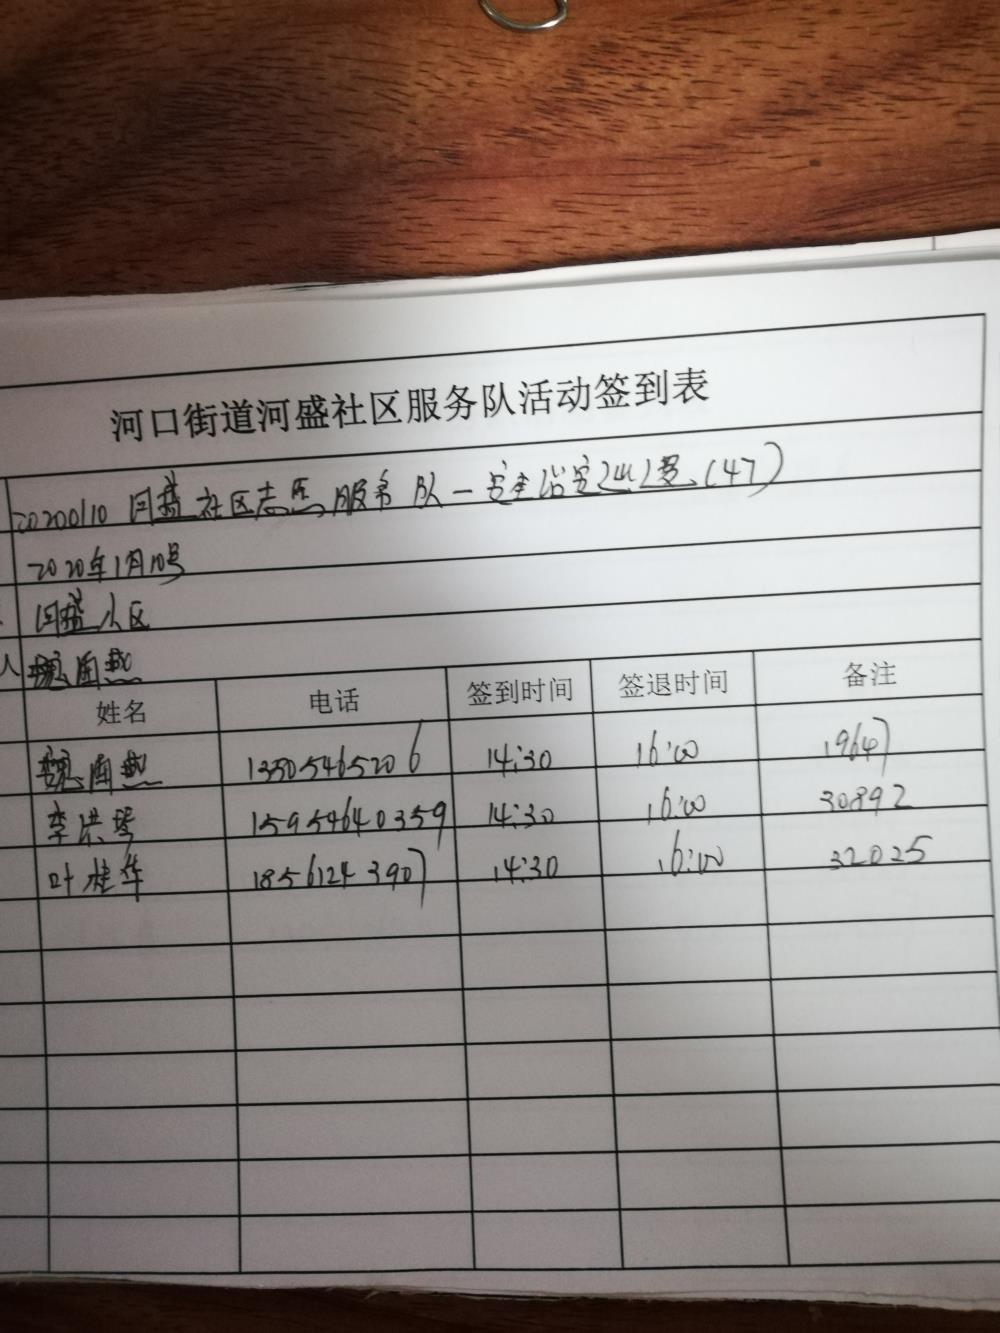 河口街道河盛社区服务队活动签到表
20200110 河盛社区志愿服务队一安全治安巡逻(47)
2020年1月10号
河盛小区
人 魏国燕
姓名 电话 签到时间 签退时间 备注
魏国燕 13505465206 14:30 16:00 19647
李洪琴 15954640359 14:30 16:00 30892
叶桂华 18561243907 14:30 16:00 32025